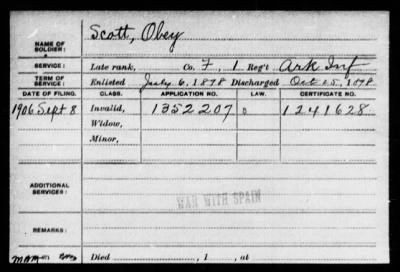 NAME OF SOLDIER: Scott, Obey
SERVICE: Late rank, Co. F, 1 Reg't Ark Inf
TERM OF SERVICE: Enlisted July 6, 1898 Discharged Oct 25, 1898
DATE OF FILING. CLASS. APPLICATION NO. LAW. CERTIFICATE NO.
1906 Sept 8 Invalid, 1352207 0 1241628
Widow,
Minor,
ADDITIONAL SERVICES:
WAR WITH SPAIN
REMARKS:
Died , 1 , at